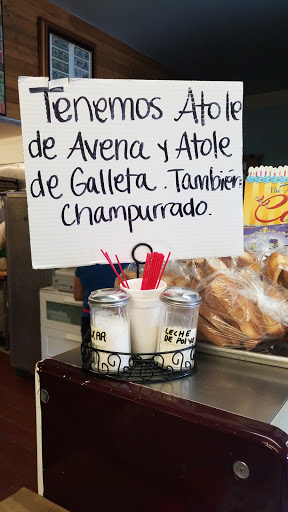 Tenemos Atole
de Avena y Atole
de Galleta. También
Champurrado.
LECHE
DE POLVO